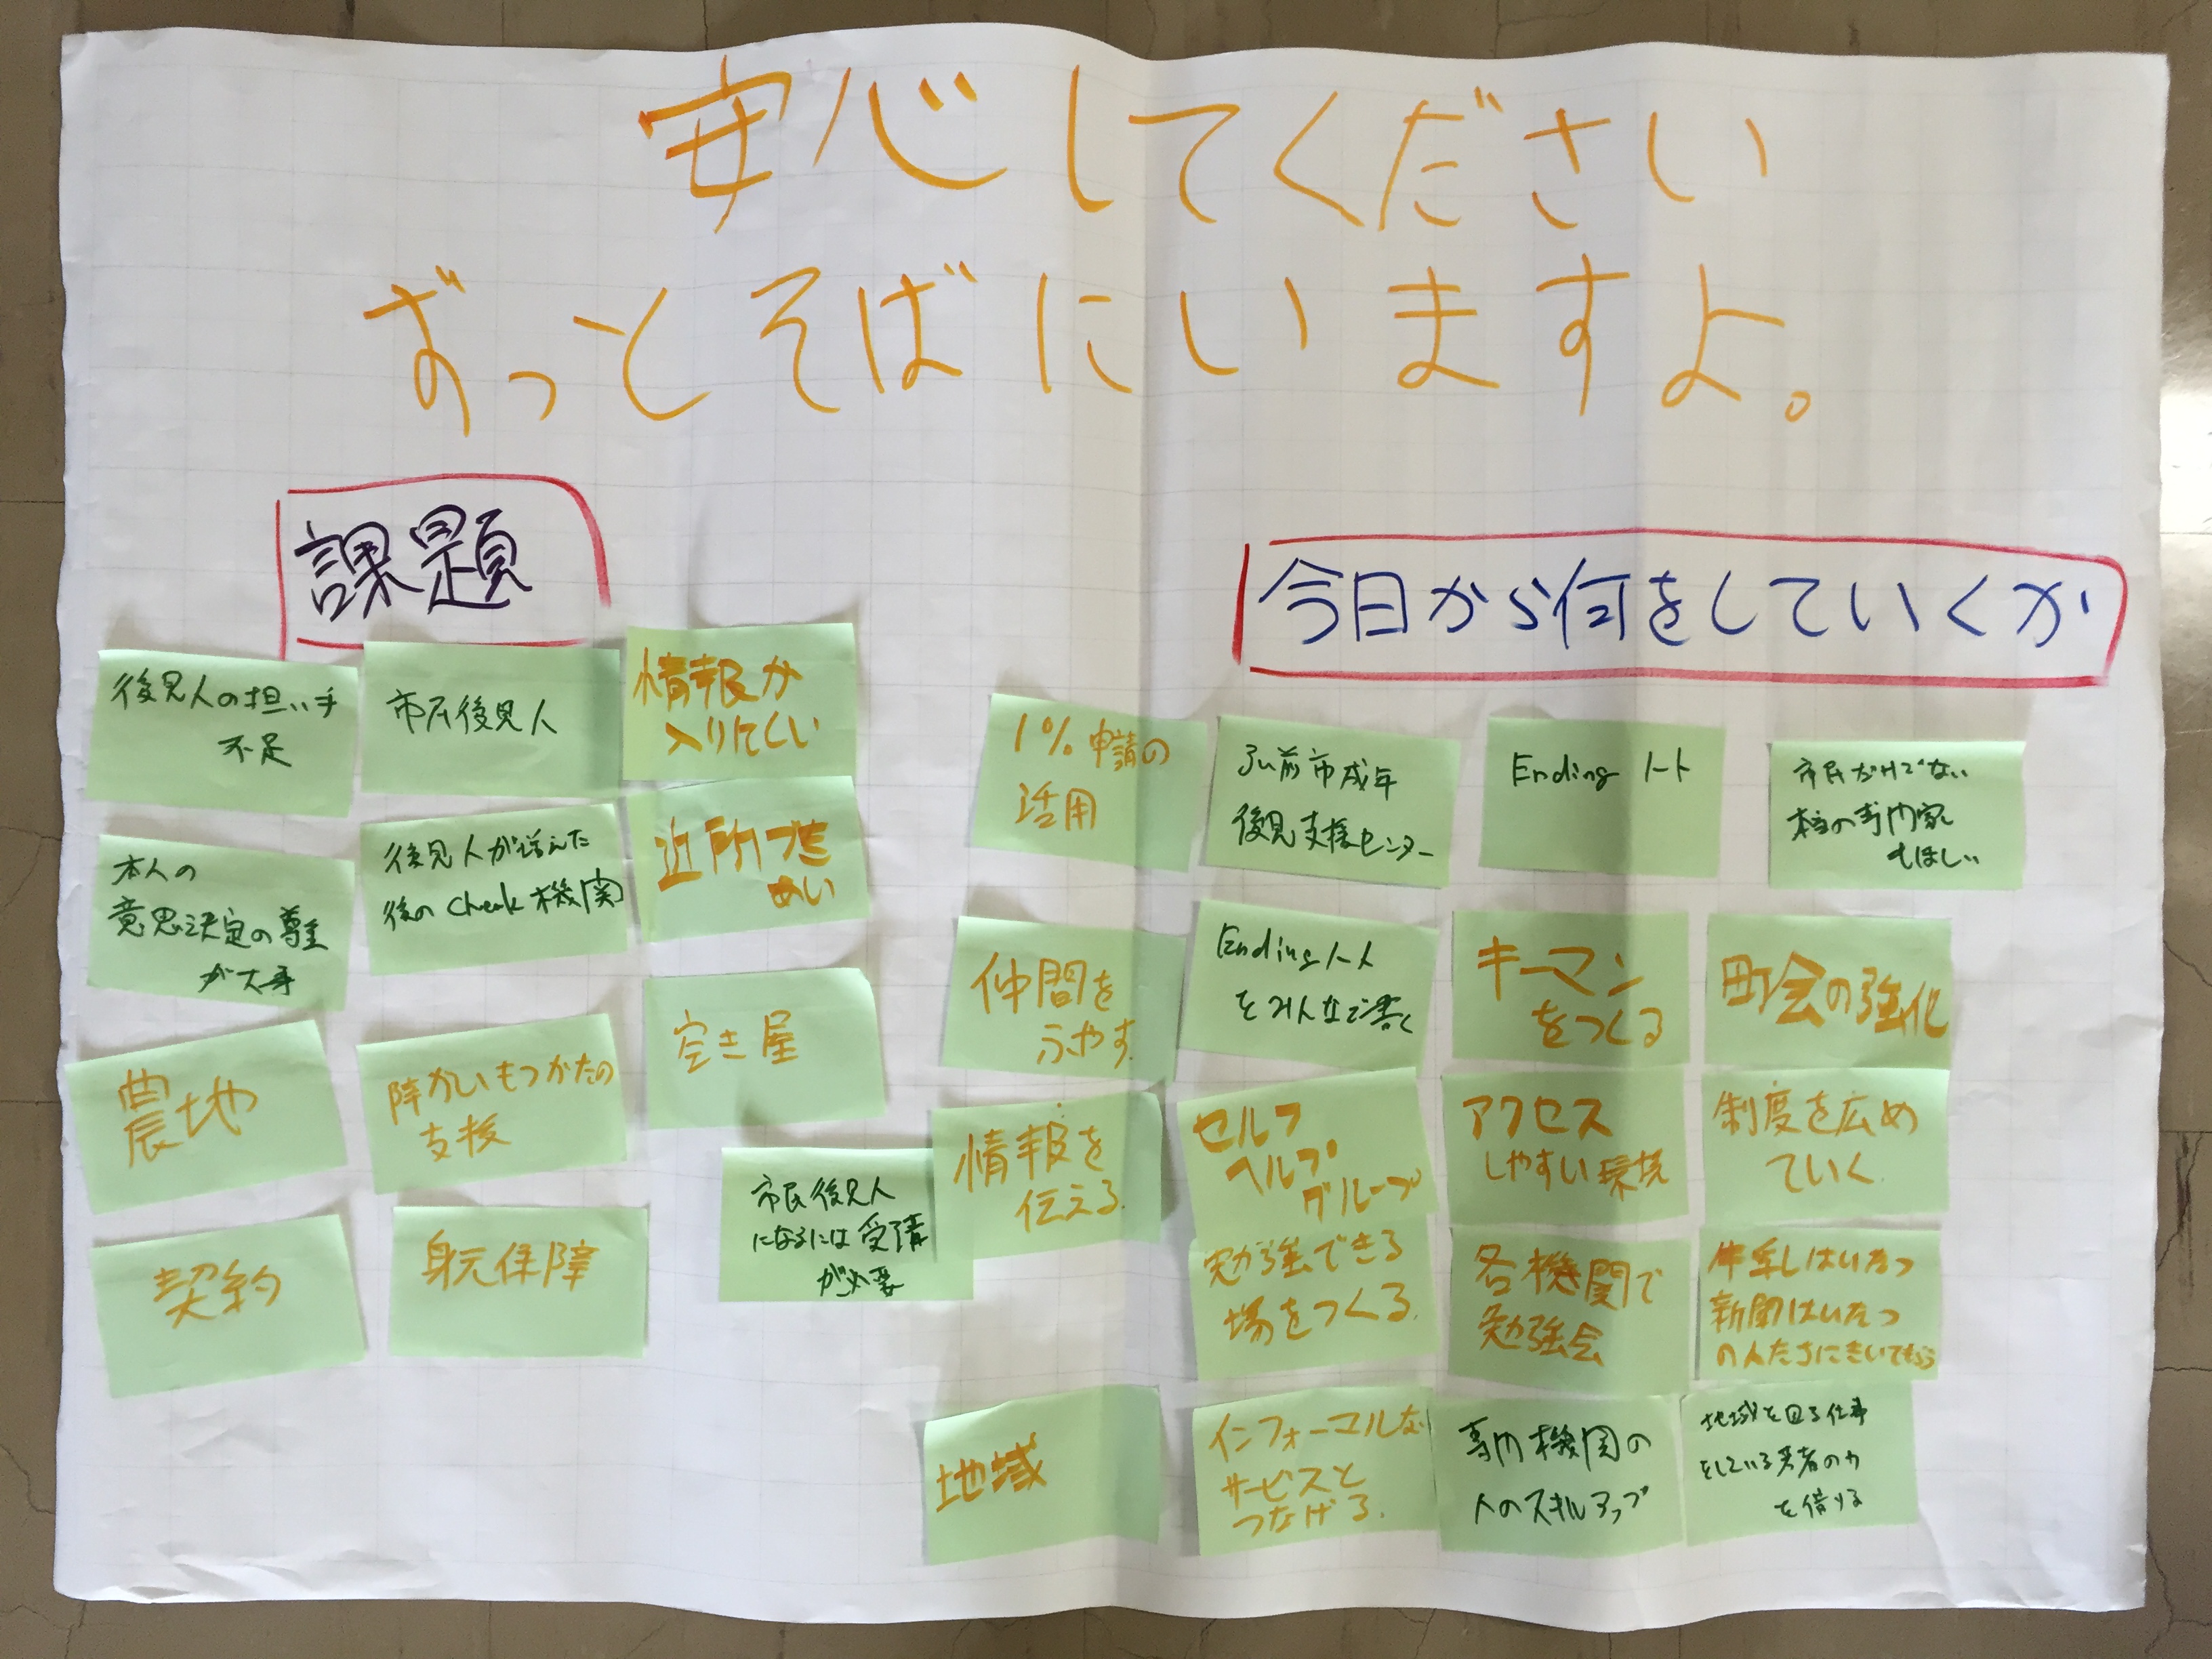 安心してください
ずっとそばにいますよ。
課題
後見人の担い手
不足
市民後見人
情報が
入りにくい
本人の
意思決定の尊重
が大事
後見人が増えた
後のCheck機関
近所づき
あい
農地
障がいもつかたの
支援
空き屋
契約
身元保障
市民後見人
になるには受講
が必要
今日から何をしていくか
1%申請の
活用
弘前市成年
後見支援センター
Endingノート
市民だけでない
本当の専門家
もほしい
仲間を
ふやす
Endingノート
をみんなで書く
キーマン
をつくる
町会の強化
情報を
伝える
セルフ
ヘルプ
グループ
アクセス
しやすい環境
制度を広め
ていく
勉強できる
場をつくる
各機関で
勉強会
牛乳はいたつ
新聞はいたつ
の人たちにきいてもらう
地域
インフォーマルな
サービスと
つなげる
専門機関の
人のスキルアップ
地域を回る仕事
をしている若者の力
を借りる